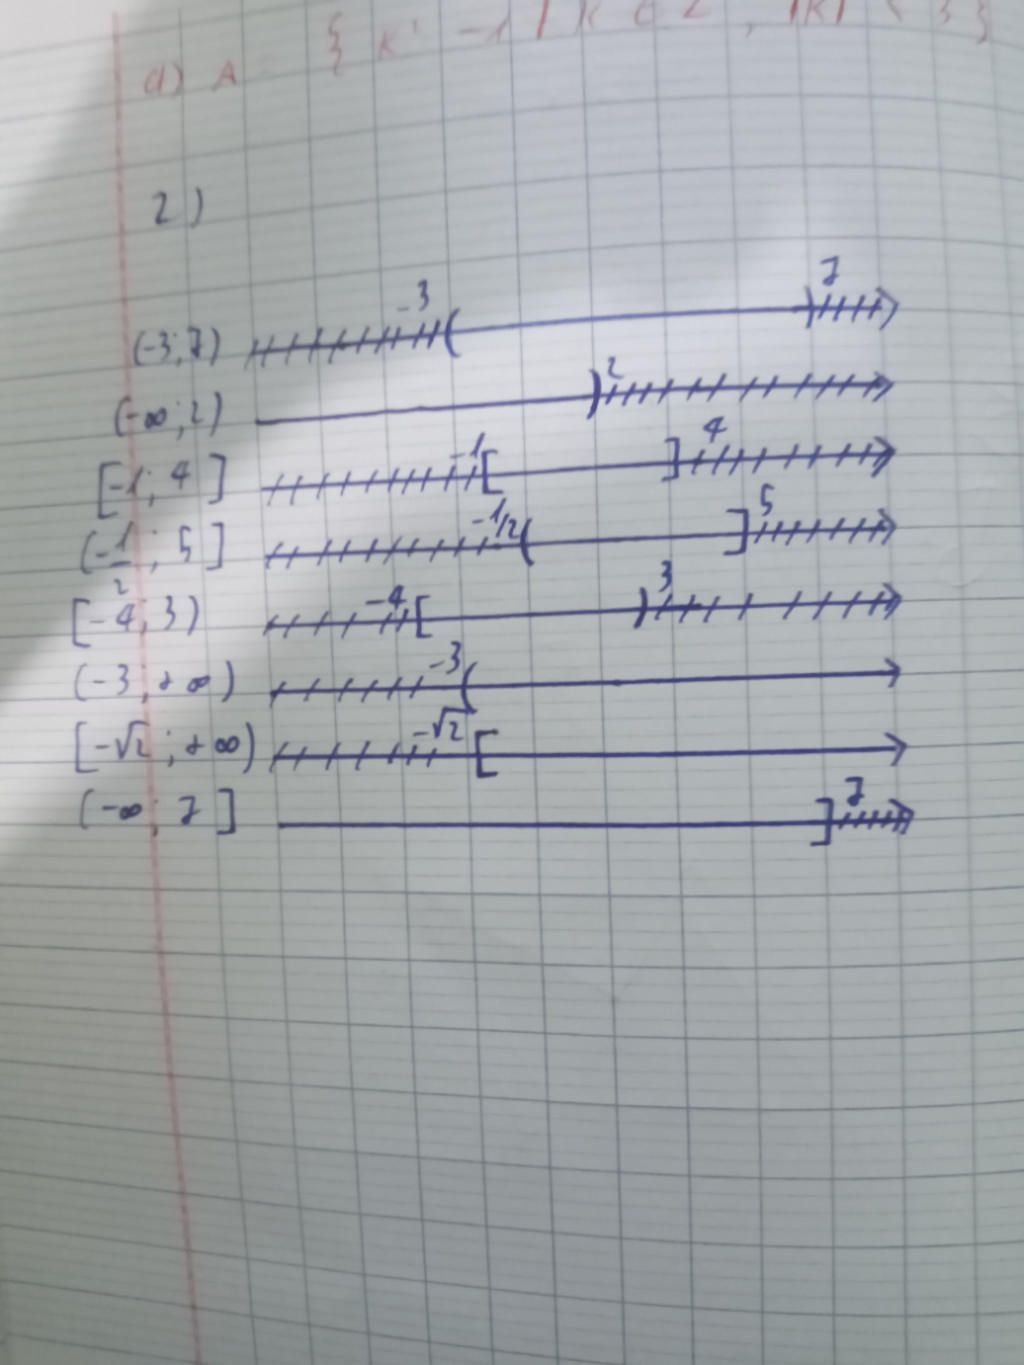 a) A = { k² - 1 / k ∈ Z , |k| < 3 }
2)
(-3;7) -3 ( ) 7
(-∞;2) ) 2
[-1;4] -1 [ ] 4
(-1/2;5] -1/2 ( ] 5
[-4;3) -4 [ ) 3
(-3;+∞) -3 (
[-√2;+∞) -√2 [
(-∞;7] ] 7